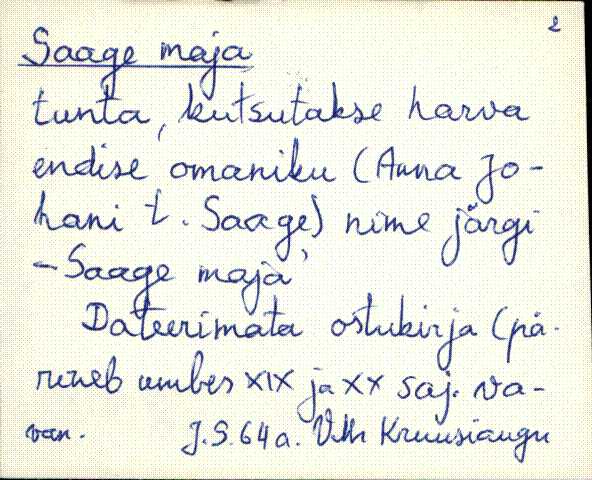 2
Saage maja
tunta, kutsutakse harva
endise omaniku (Anna Jo-
hani t. Saage) nime järgi
- Saage maja
Dateerimata ostukirja (pä-
rineb umbes XIX ja XX saj. va-
J.S. 64 a. Kruusiaugu